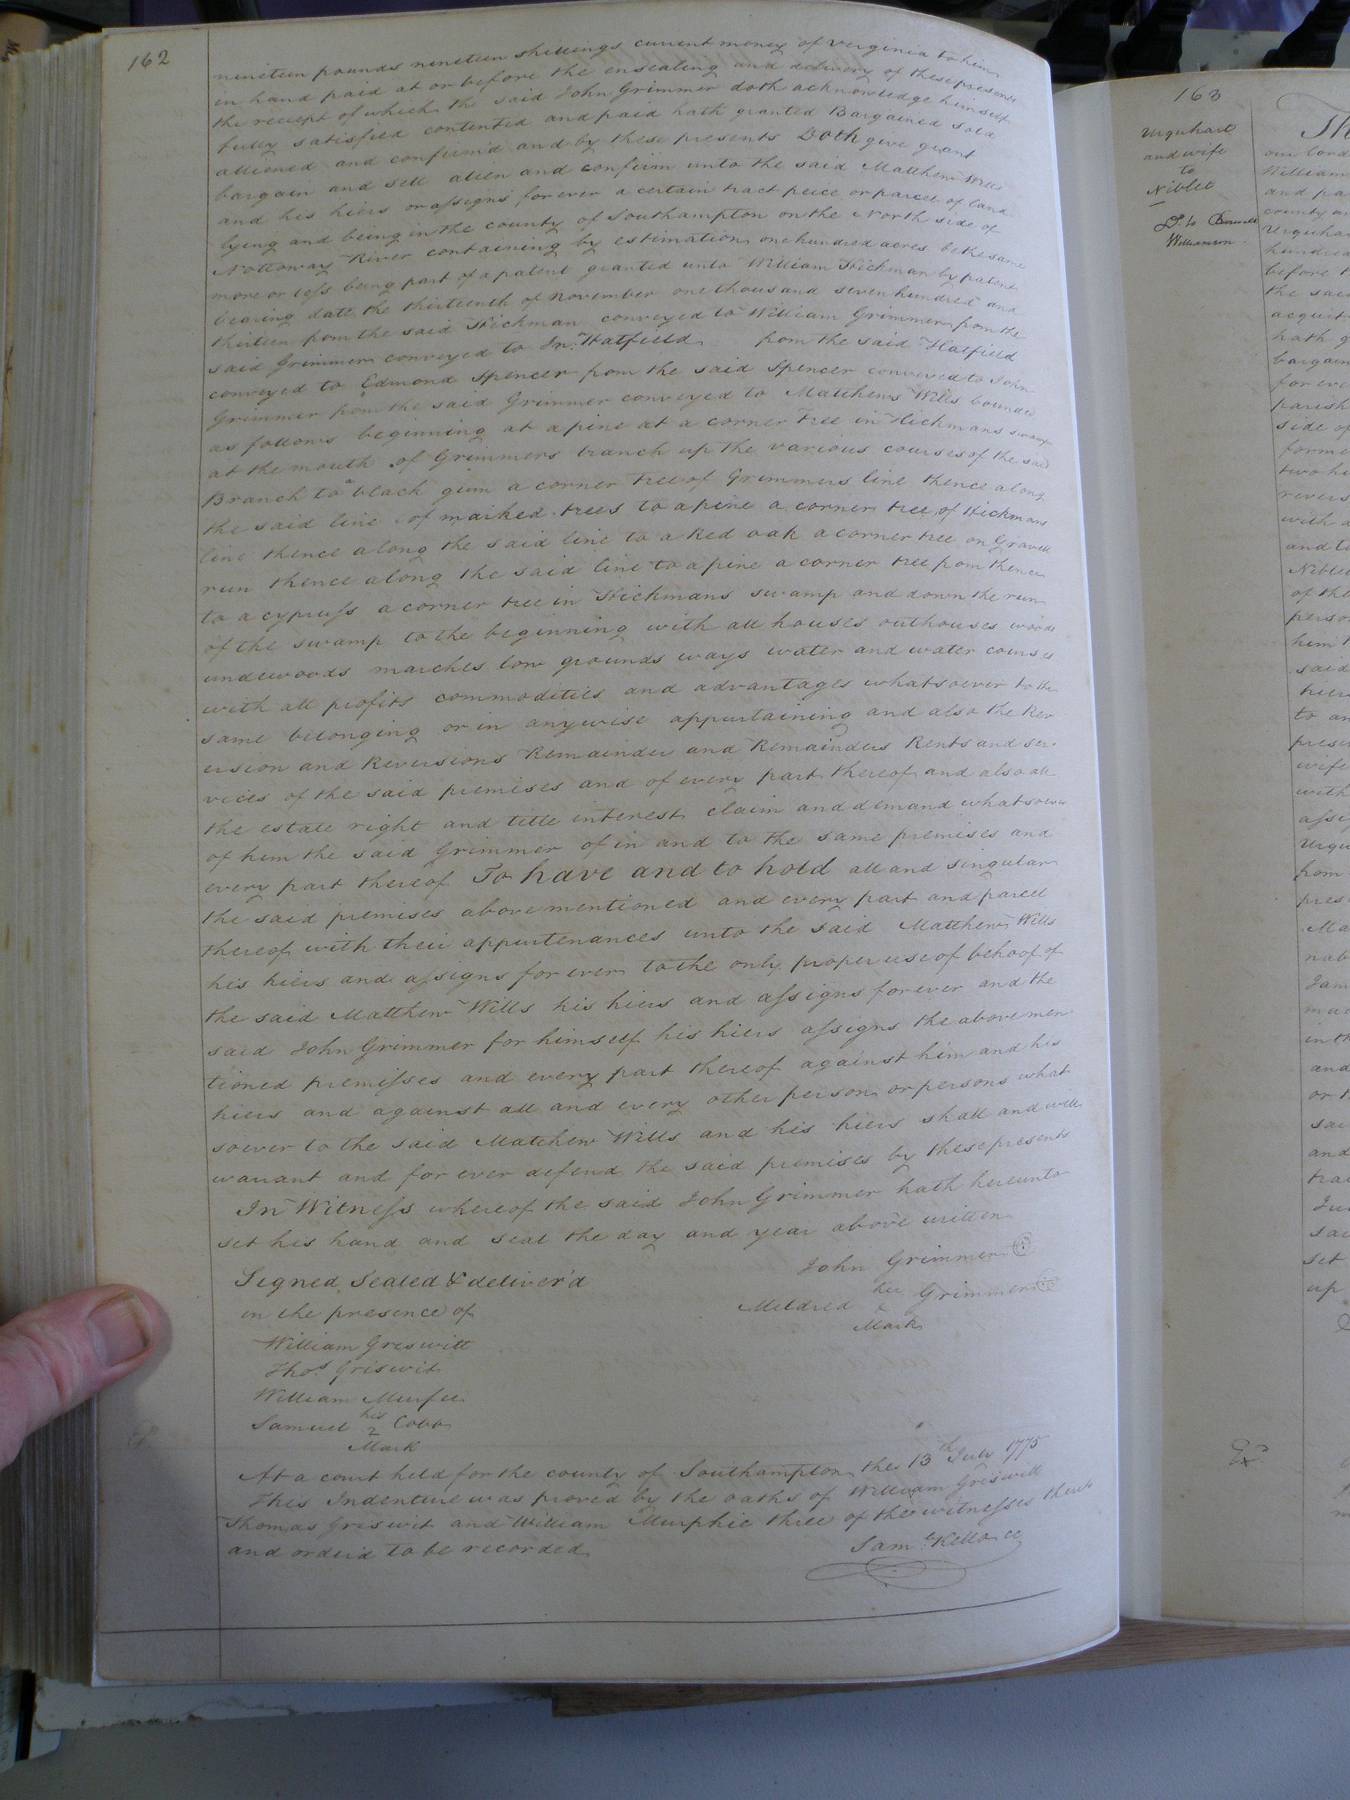 162
nineteen pounds nineteen shillings current money of Virginia to him
in hand paid at or before the ensealing and delivery of these presents
the receipt of which the said John Grimmer doth acknowledge himself
fully satisfied contented and paid hath granted Bargained sold
aliened and confirm'd and by these presents Doth give grant
bargain and sell alien and confirm unto the said Matthew Wills
and his hiers or assigns forever a certain tract peice or parcel of land
lying and being in the county of Southampton on the North side of
Nottoway River containing by estimation one hundred acres be the same
more or less being part of a patent granted unto William Hickman by patent
bearing date the thirteenth of November one thousand seven hundred and
thirteen from the said Hickman conveyed to William Grimmer from the
said Grimmer conveyed to Jn.º Hatfield from the said Hatfield
conveyed to Edmond Spencer from the said Spencer conveyed to John
Grimmer from the said Grimmer conveyed to Matthew Wills bounded
as follows beginning at a pine at a corner Tree in Hickmans swamp
at the mouth of Grimmers branch up the various courses of the said
Branch to a black gum a corner tree of Grimmers line thence along
the said line of marked trees to a pine a corner tree of Hickmans
line thence along the said line to a Red oak a corner tree on Gravell
run thence along the said line to a pine a corner tree from thence
to a cypress a corner tree in Hickmans swamp and down the run
of the swamp to the beginning with all houses outhouses woods
underwoods marches low grounds ways water and water courses
with all profits commodities and advantages whatsoever to the
same belonging or in anywise appurtaining and also the Rev
ersion and Reversions Remainder and Remainders Rents and ser
vices of the said premises and of every part thereof and also all
the estate right and title interest claim and demand whatsoever
of him the said Grimmer of in and to the same premises and
every part thereof To have and to hold all and singular
the said premises above mentioned and every part and parcel
thereof with their appurtenances unto the said Matthew Wills
his hiers and assigns for ever to the only proper use of behoof of
the said Matthew Wills his hiers and assigns forever and the
said John Grimmer for himself his hiers assigns the above men
tioned premisses and every part thereof against him and his
hiers and against all and every other person or persons what
soever to the said Matthew Wills and his hiers shall and will
warrant and for ever defend the said premises by these presents
In Witness whereof the said John Grimmer hath hereunto
set his hand and seal the day and year above written
John Grimmer
Signed Sealed & deliver'd
her
Mildred Grimmer
Mark
in the presence of
William Griswitt
Thos Griswit
William Murfee
his
Samuel 2 Cobb
Mark
At a court held for the county of Southampton the 13th July 1775
This Indenture was proved by the oaths of William Griswitt
Thomas Griswit and William Murphie three of the witnesses thereto
and order'd to be recorded
Sam Kello cc
163
Urquhart
and wife
to
Niblet
Williamson
our lord
William
and pa
county
hundred
before
the said
acquit
hath g
bargain
for eve
parish
side of
forme
two hu
revers
with a
and
of the
perso
him
said
to an
presen
wife
with
assig
Urqu
from
pres
Ma
in th
and
sai
and
set
up